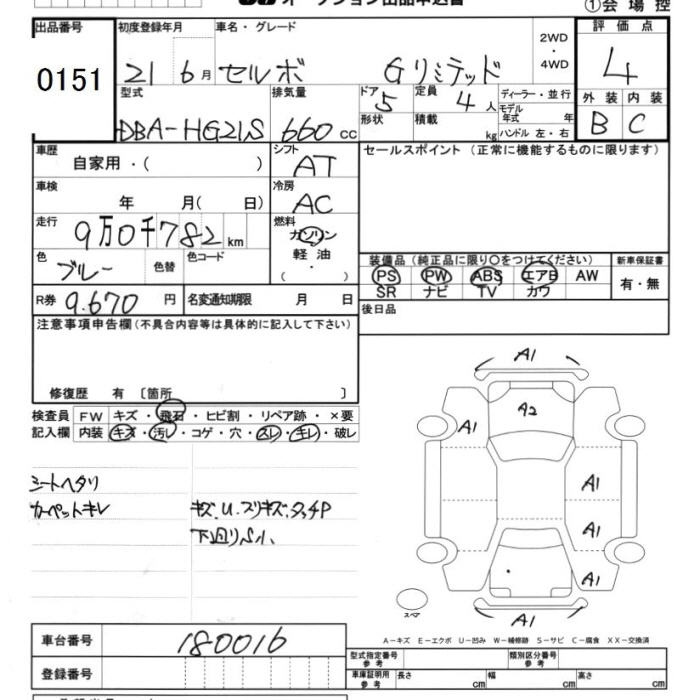 オークション出品申込書
①会場控
出品番号
0151
初度登録年月 車名・グレード 2WD ・ 4WD
21 6月 セルボ Gリミテッド
評価点
4
外装 内装
B C
型式 排気量 ドア 定員 ディーラー・並行
DBA-HG21S 660cc 5 4人
モデル年式 年
形状 積載 kg ハンドル 左・右
車歴 シフト
自家用・( ) AT
セールスポイント(正常に機能するものに限ります)
車検 冷房
年 月( 日) AC
走行 燃料
9万0千782km ガソリン
軽油
( ・ )
色 色替 色コード
ブルー
装備品(純正品に限り○をつけてください) 新車保証書
PS PW ABS エアB AW 有・無
SR ナビ TV カワ
R券 9.670円 名変通知期限 月 日
後日品
注意事項申告欄(不具合内容等は具体的に記入して下さい)
修復歴 有 〔箇所 〕
検査員 FW キズ・飛石・ヒビ割・リペア跡・×要
記入欄 内装 キズ・汚レ・コゲ・穴・スレ・キレ・破レ
シートヘタリ
カーペットキレ キズ.U.スリキズ.タッチP
下回りS小、
A1
A2
A1
A1
A1
A1
A1
スペア
A-キズ E-エクボ U-凹み W-補修跡 S-サビ C-腐食 XX-交換済
車台番号 180016
型式指定番号 参考 類別区分番号 参考
登録番号
車庫証明用 参考 長さ cm 幅 cm 高さ cm